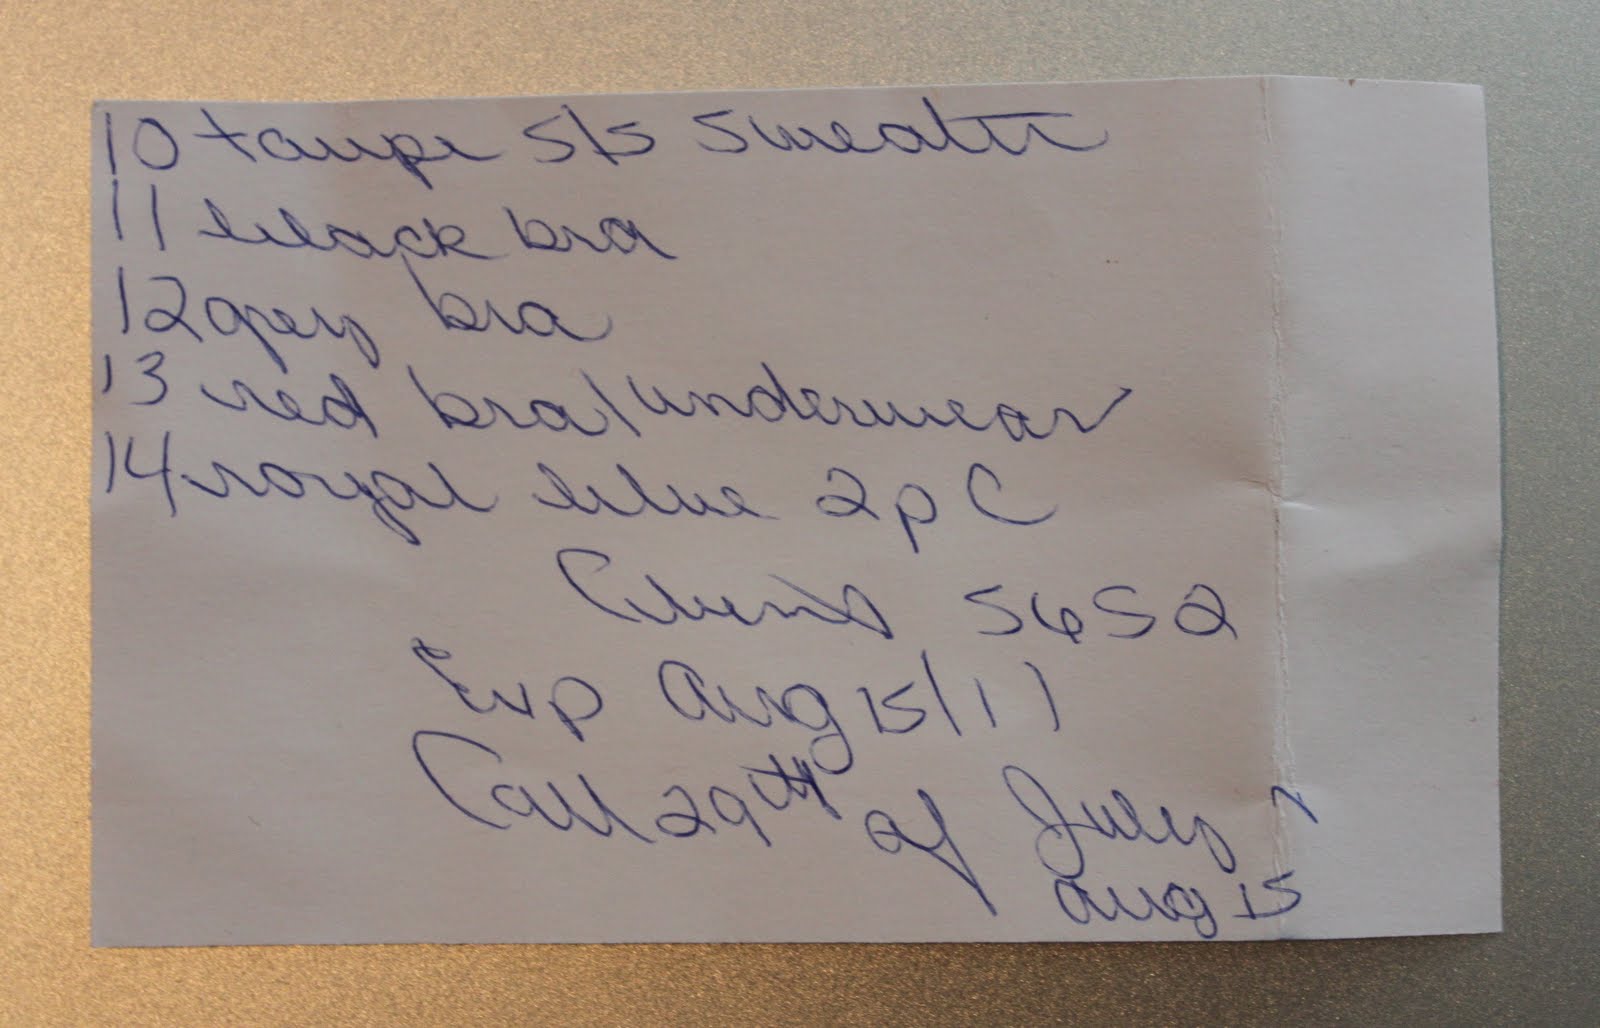 10 taupe s/s sweater
11 black bra
12 grey bra
13 red bra/underwear
14 royal blue 2pC
5652
Exp Aug 15/11
Call 29th of July
Aug 15